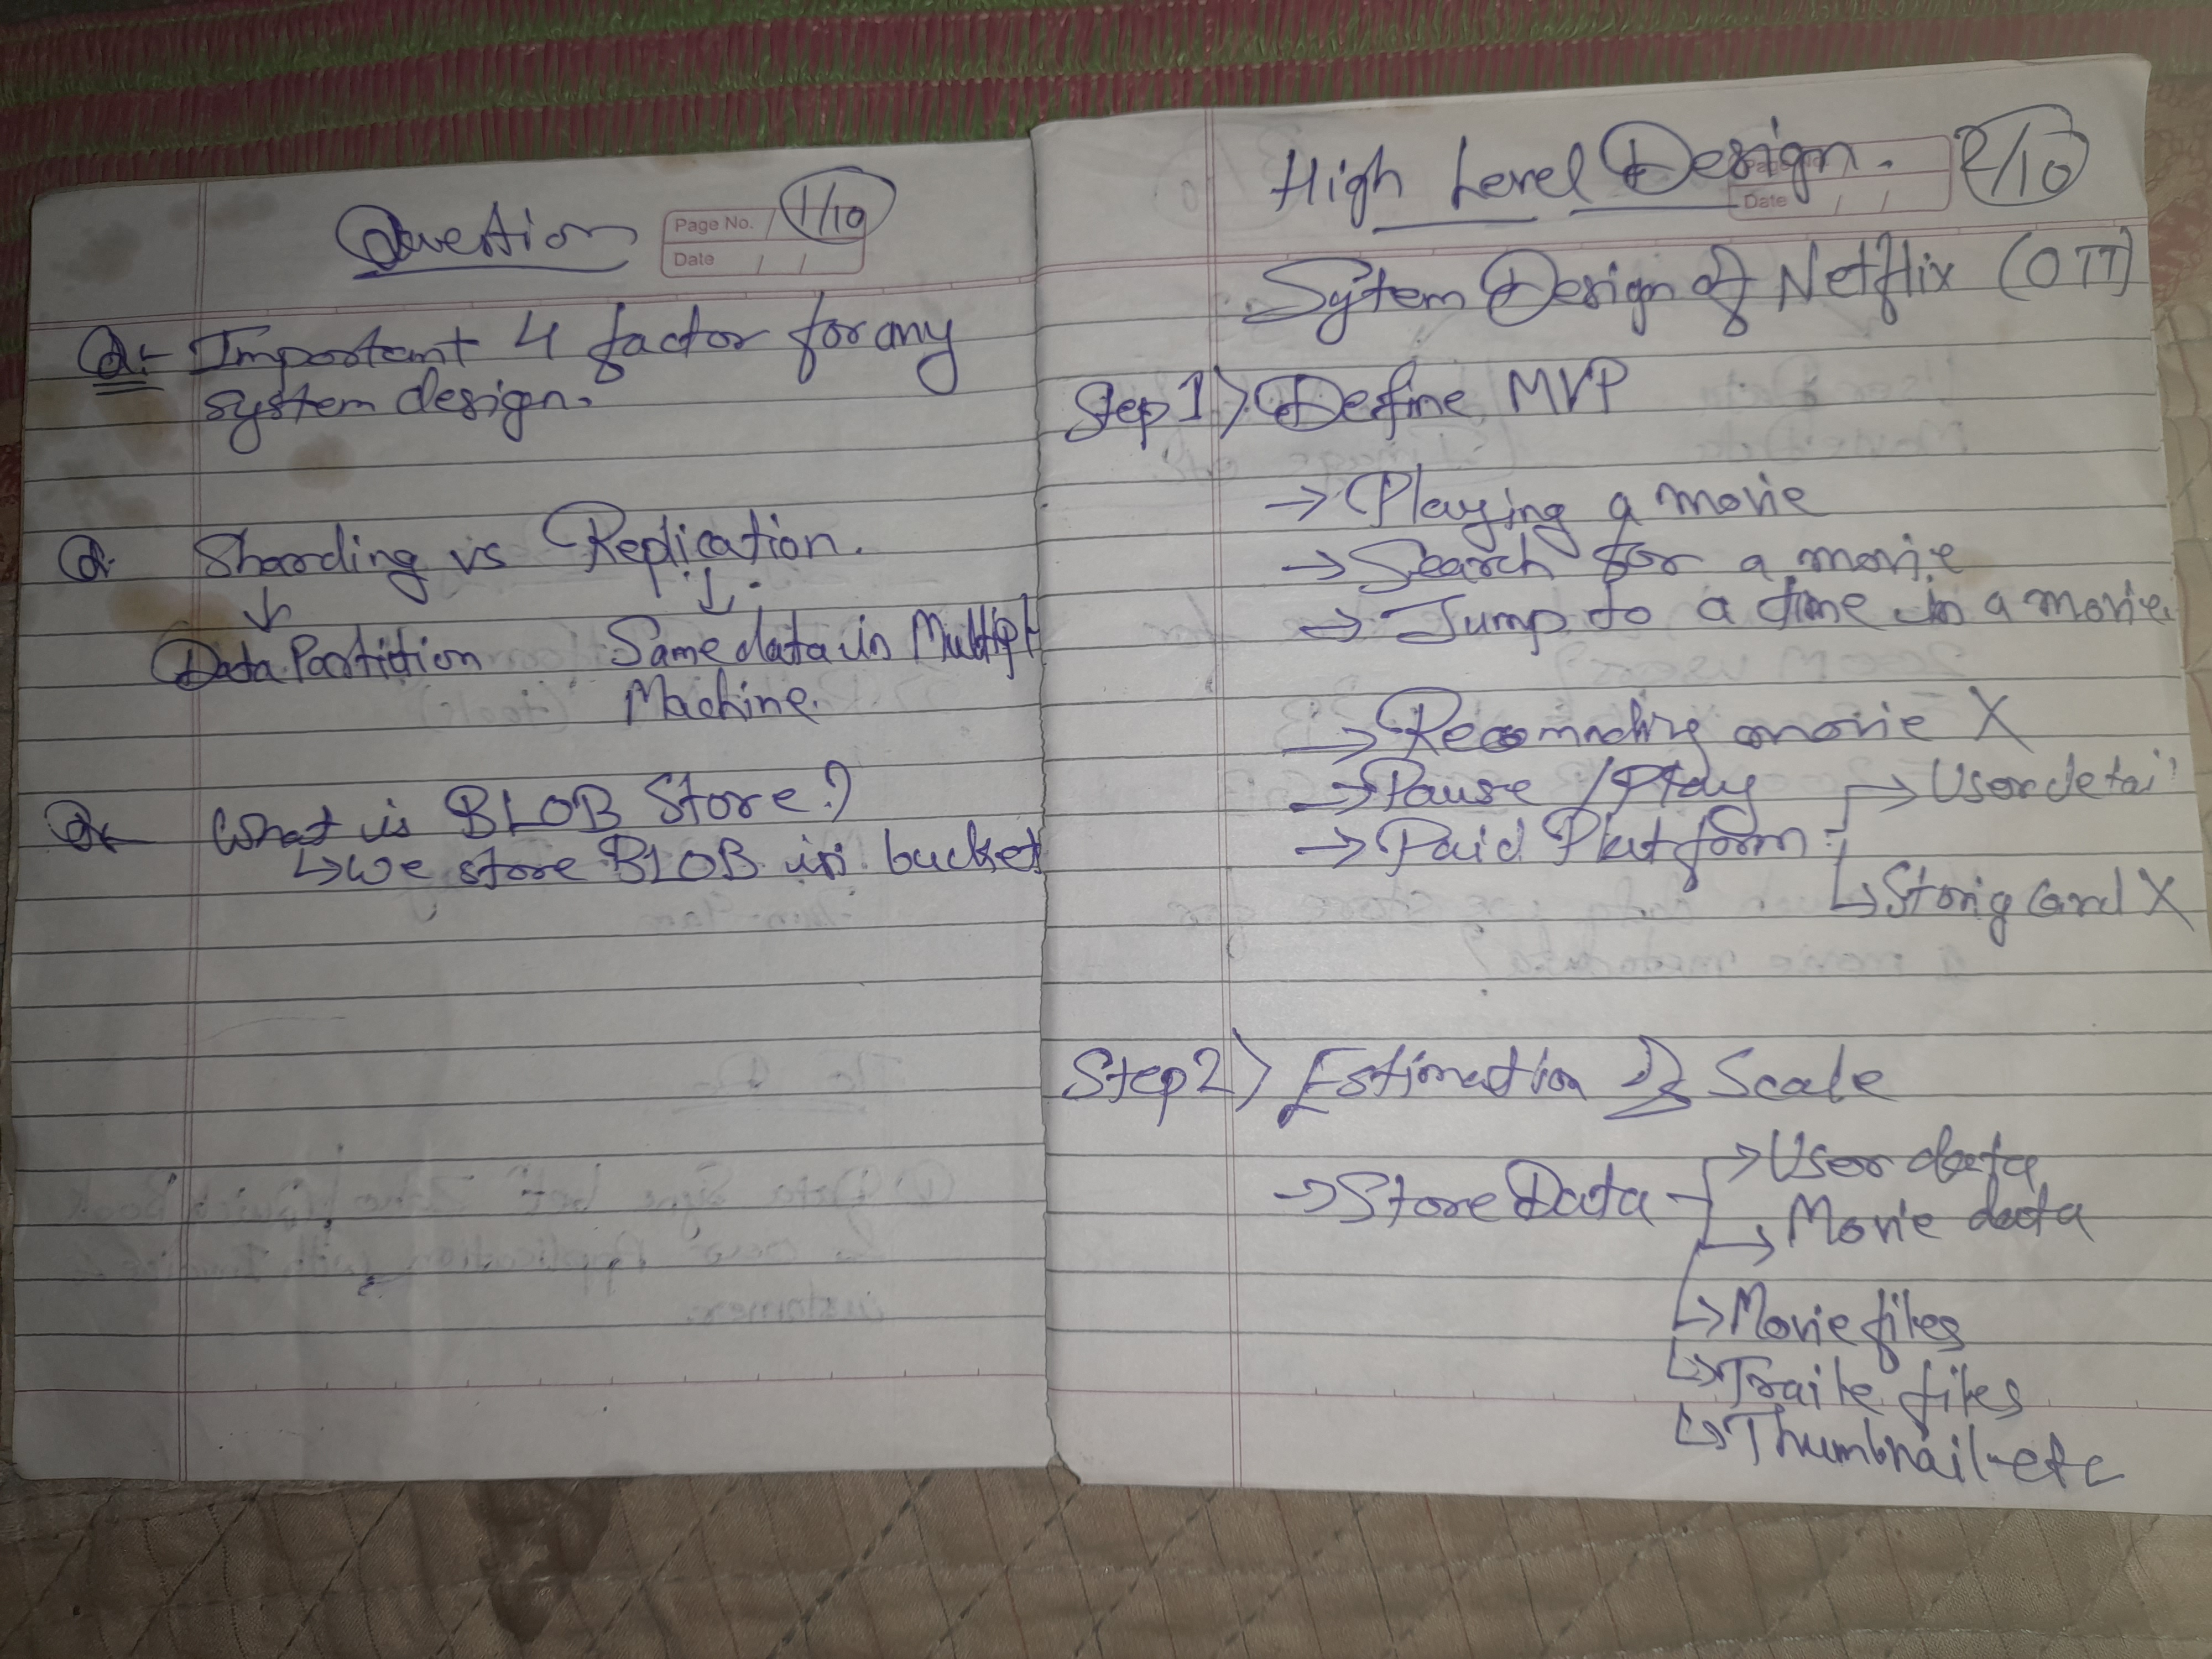 Question
Page No.
Date / /
1/10
Q:- Important 4 factor for any
system design.
Q. Sharding vs Replication.
↓ ↓
Data Partition Same data in Multipl
Machine.
Q:- What is BLOB Store?
↳ We store BLOB in bucket
High Level Design. 2/10
Date / /
System Design of Netflix (OTT)
Step 1> Define MVP
→ Playing a movie
→ Search for a movie
→ Jump to a time in a movie.
→ movie X
→ Pause/Play
→ Paid Platform → User detai
↳ Storing Card X
Step 2> Estimation Scale
→ Store Data → User data
→ Movie data
↳ Movie files
↳ Traile files
↳ Thumbnail-etc